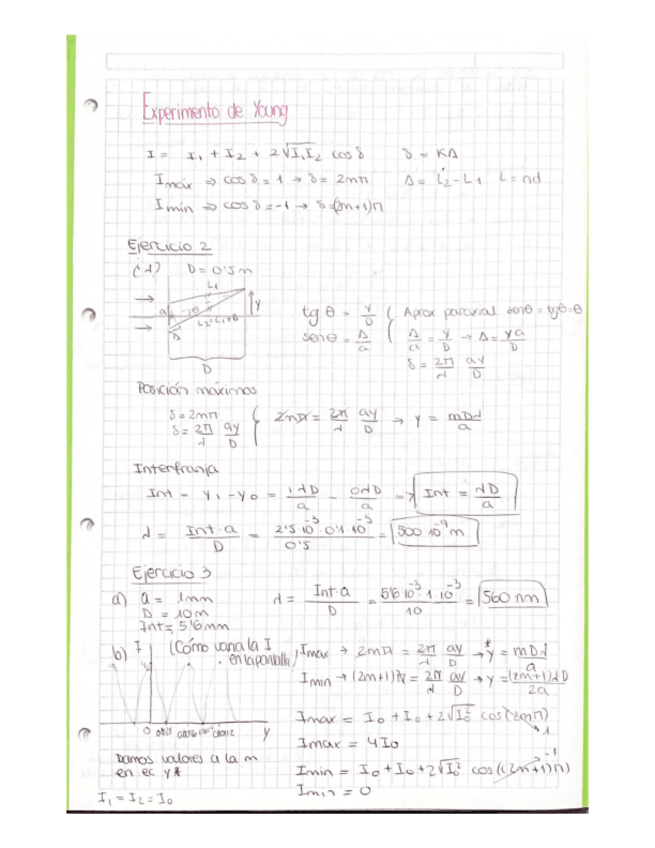 Experimento de Young
I = I₁ + I₂ + 2√I₁I₂ cos δ   δ = KΔ
Imáx ⇒ cos δ = 1 → δ = 2mπ   Δ = L₂ - L₁   L = nd
Imín ⇒ cos δ = -1 → δ = (2m+1)π
Ejercicio 2
¿λ?   D = 0'5m
L₁
a θ y
L₂ = L₁ + Δ
Δ
D
tg θ = y/D   Aprox paraxial senθ = tgθ = θ
senθ = Δ/a   Δ/a = y/D → Δ = ya/D
δ = 2π/λ ay/D
Posición máximos
δ = 2mπ
δ = 2π/λ ay/D   2mπ = 2π/λ ay/D → y = mDλ/a
Interfranja
Int = y₁ - y₀ = 1λD/a - 0λD/a ⇒ Int = λD/a
λ = Int·a/D = 2'5·10⁻³·0'1·10⁻³/0'5 = 500·10⁻⁹m
Ejercicio 3
a) a = 1mm   λ = Int·a/D = 5'6·10⁻³·1·10⁻³/10 = 560 nm
D = 10m
Int = 5'6mm
b) I (Cómo varia la I en la pantalla)
Imax → 2mπ = 2π/λ ay/D → *y = mDλ/a
Imin → (2m+1)π = 2π/λ ay/D → y = (2m+1)λD/2a
0   y
Imax = I₀ + I₀ + 2√I₀² cos(2mπ) 1
Imax = 4I₀
Damos valores a la m
en ec y*
Imin = I₀ + I₀ + 2√I₀² cos((2m+1)π) -1
Imin = 0
I₁ = I₂ = I₀